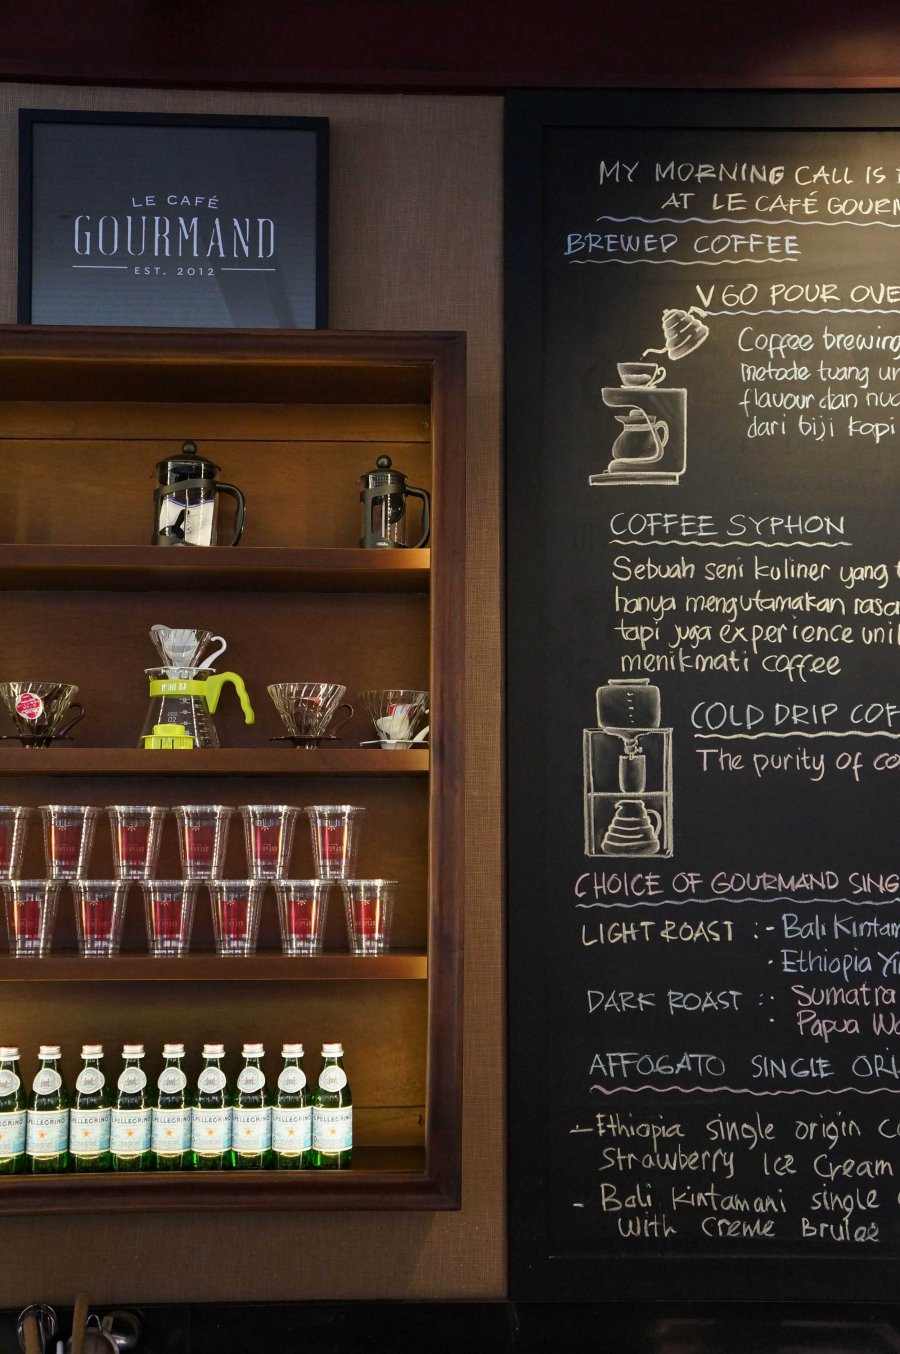 LE CAFÉ
GOURMAND
EST. 2012
MY MORNING CALL IS
AT LE CAFÉ GOURM
BREWED COFFEE
V60 POUR OVE
Coffee brewing
metode tuang un
flavour dan nua
dari biji kopi
COFFEE SYPHON
Sebuah seni kuliner yang t
hanya mengutamakan rasa
tapi juga experience unik
menikmati coffee
COLD DRIP COF
The purity of co
CHOICE OF GOURMAND SING
LIGHT ROAST :- Bali Kintam
· Ethiopia Yir
DARK ROAST :· Sumatra
· Papua Wa
AFFOGATO SINGLE ORI
- Ethiopia single origin co
Strawberry Ice Cream
- Bali Kintamani single
with Creme Brulee
S.PELLEGRINO